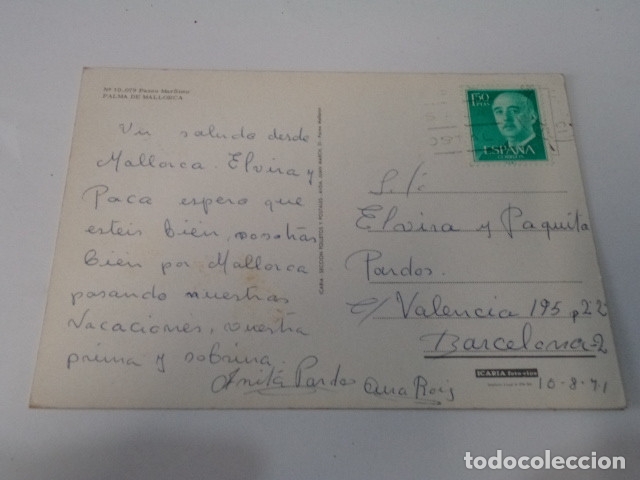 Nº 10.079 Paseo Marítimo
PALMA DE MALLORCA
Un saludo desde
Mallorca. Elvira y
Paca espero que
esteis bién, nosotras
bién por Mallorca
pasando nuestras
Vacaciones, vuestra
prima y sobrina.
Anita Pardos Ana Rois
1'50
PTAS
ESPAÑA
CORREOS
Elvira y Paquita
Pardos.
c/ Valencia 195 p 22
Barcelona-2
ICARIA foto-cine
10-8-71
todocoleccion.net